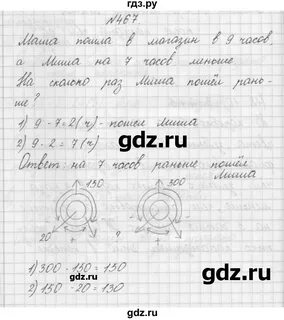 гдз.ру
№467
Маша пошла в магазин в 9 часов,
а Миша на 7 часов меньше.
На сколько раз Миша пошёл рань-
ше?
1) 9 - 7 = 2 (ч) - пошел Миша
2) 9 - 2 = 7 (ч)
Ответ: на 7 часов раньше пошёл
Миша
gdz.ru
130
300
20
+
?
+
1) 300 - 150 = 150
2) 150 - 20 = 130
gdz.ru
gdz.ru